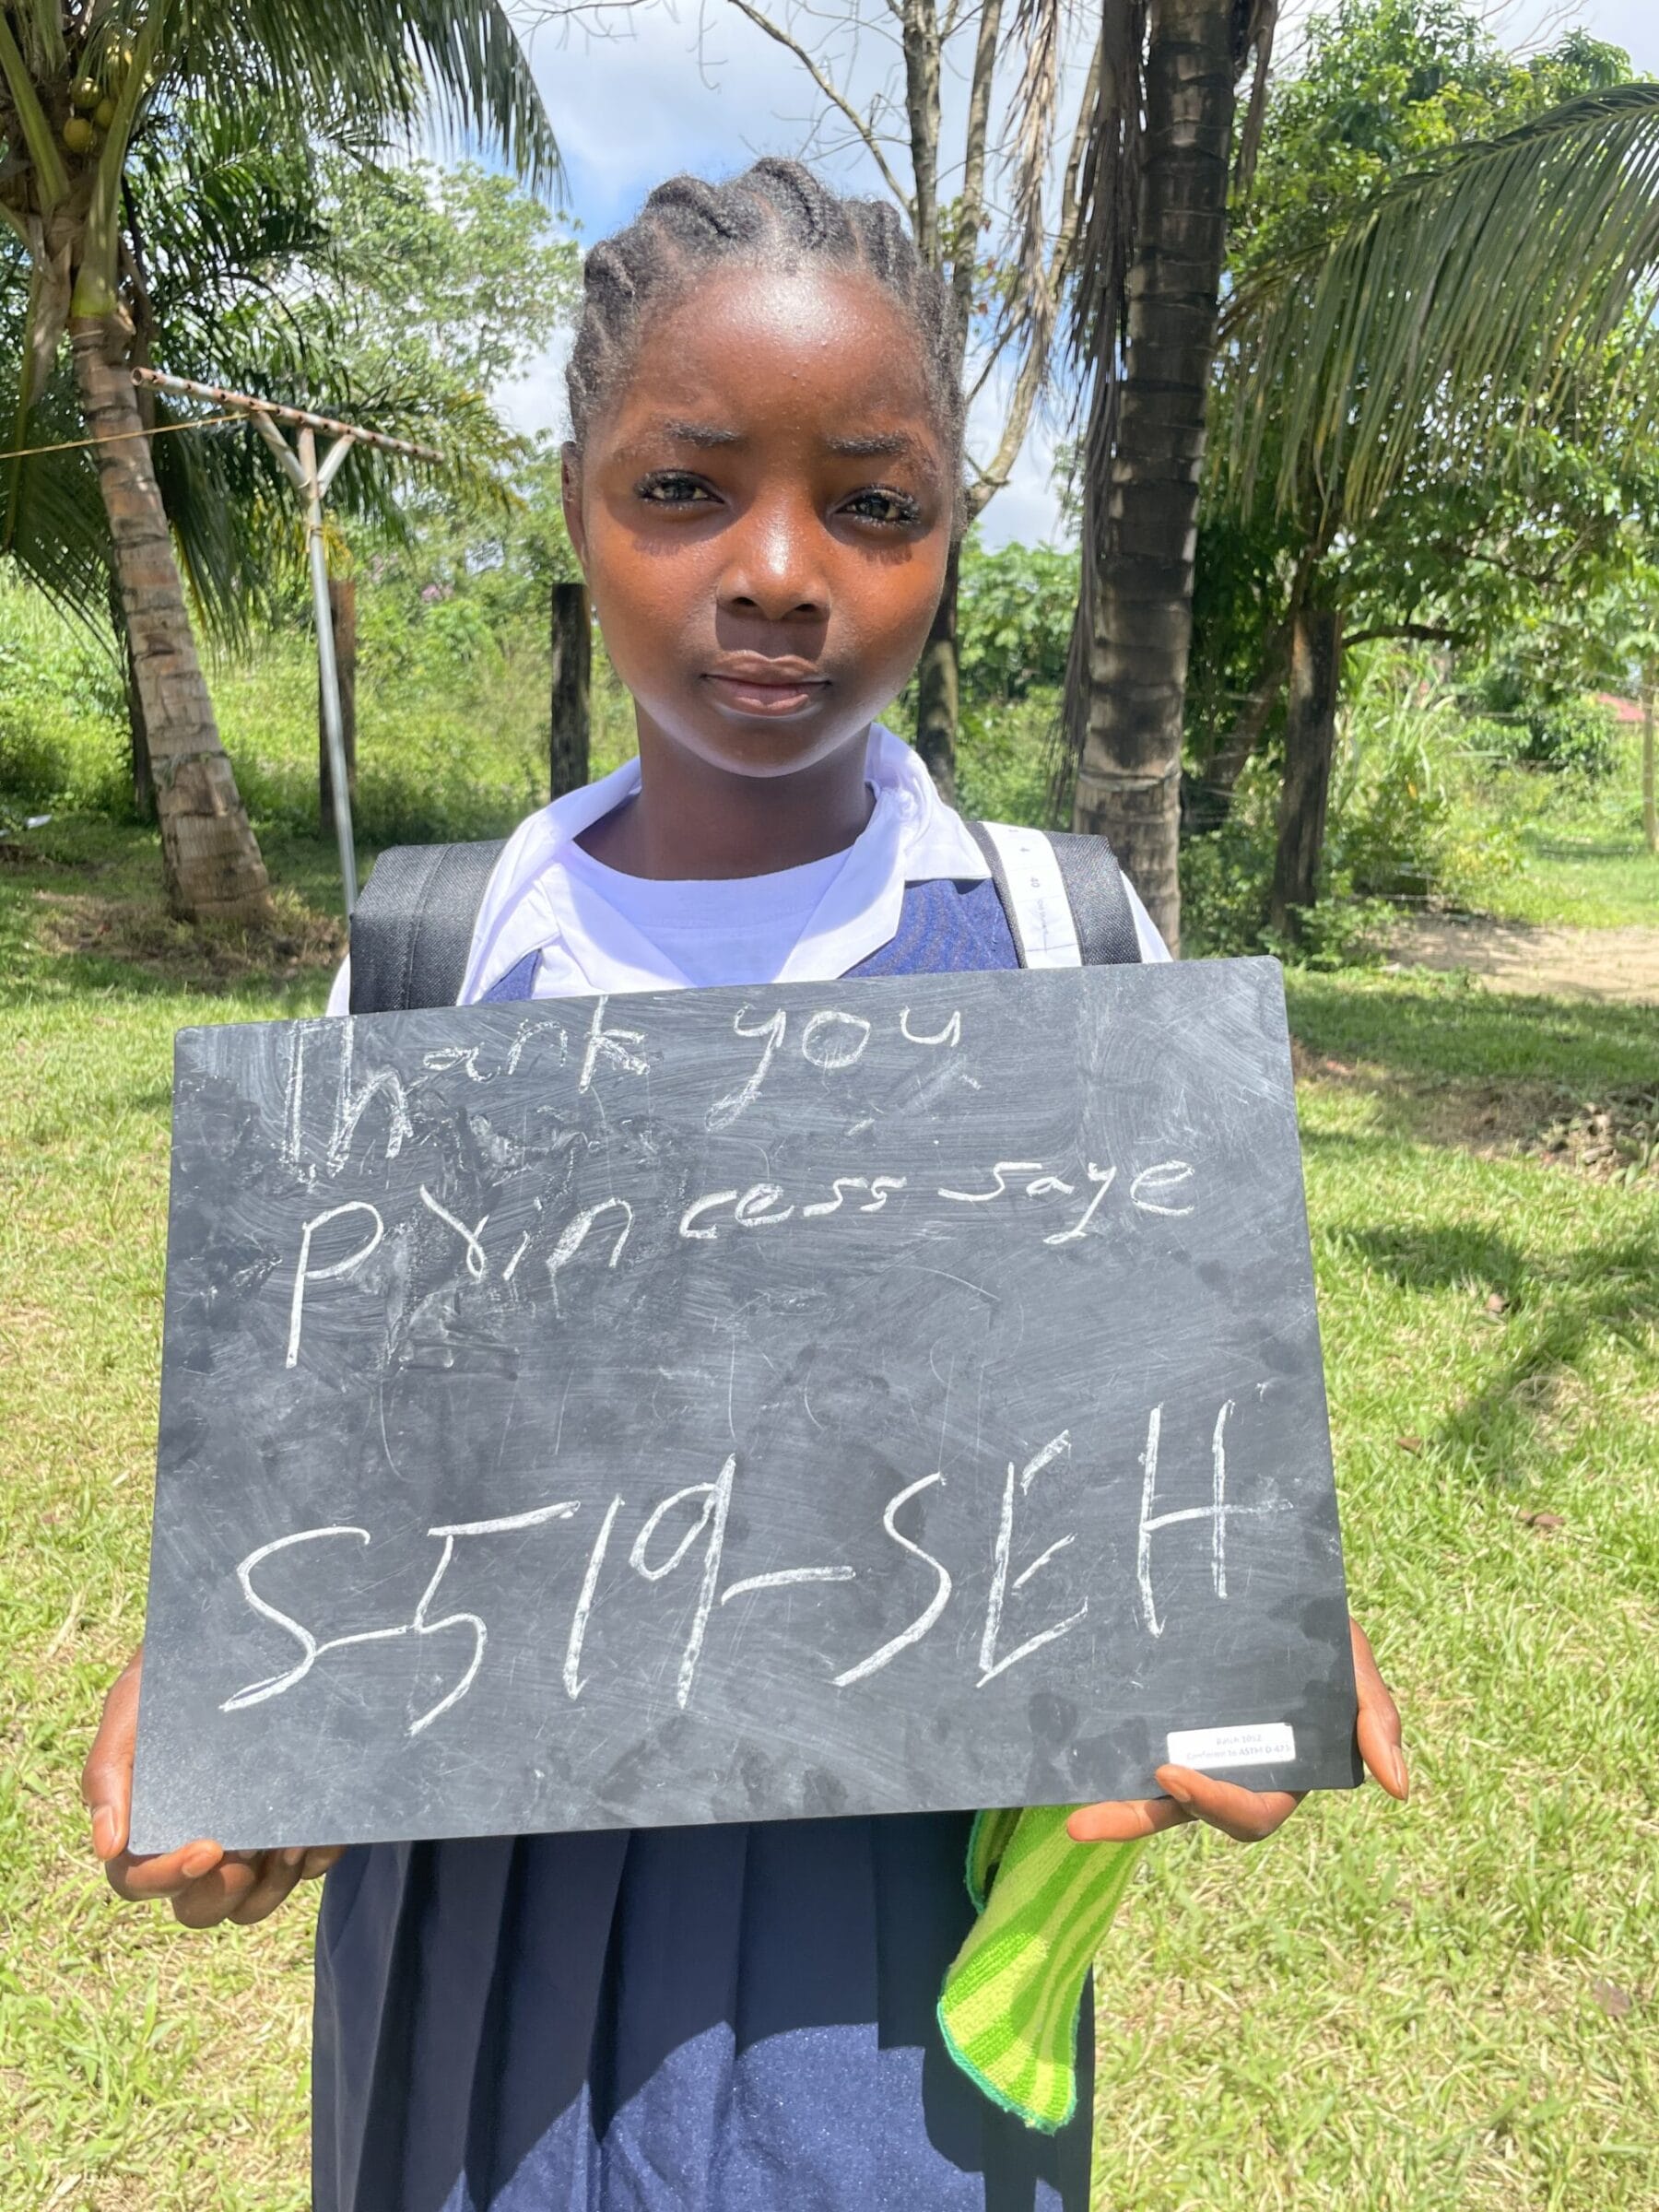 Thank you
Princess saye
S-519-SEH
Batch 1012
Conforms to ASTM D-42